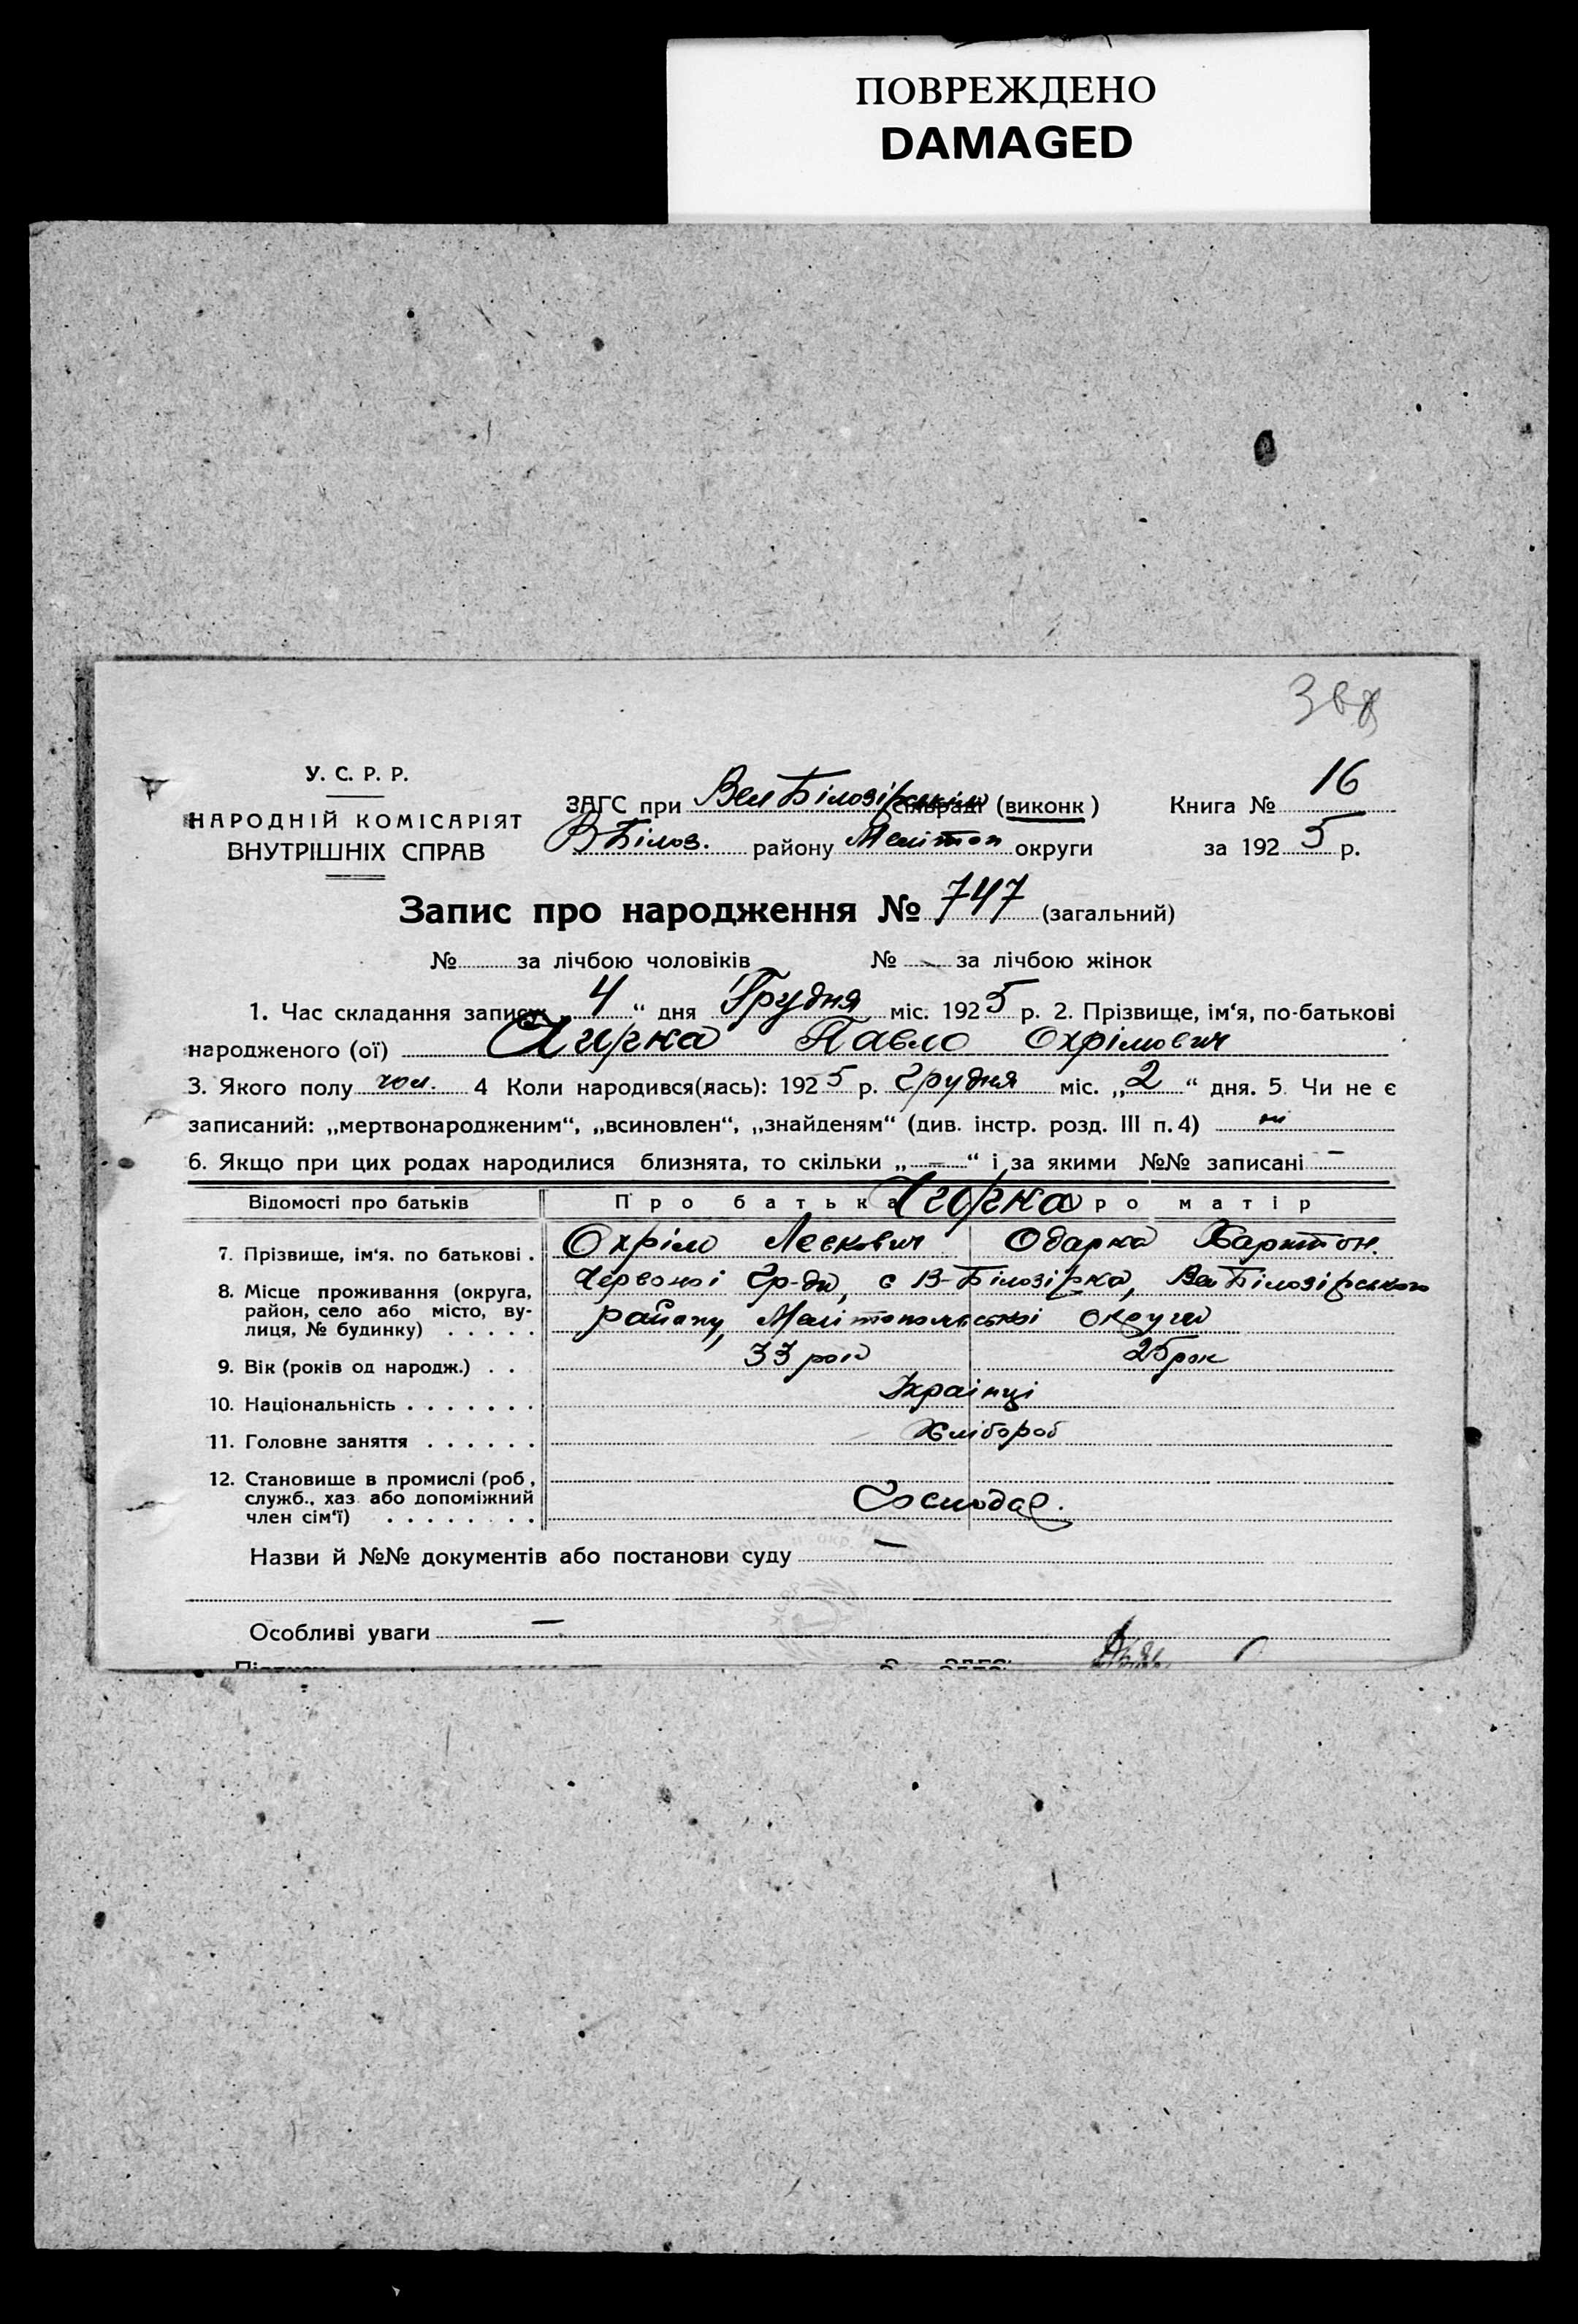 ПОВРЕЖДЕНО
DAMAGED
У. С. Р. Р.
НАРОДНІЙ КОМІСАРІЯТ
ВНУТРІШНІХ СПРАВ
16
ЗАГС при Вел Білозірськім сільраді (виконк) Книга №
В Білоз. району Мелітоп округи за 1925 р.
Запис про народження № 747 (загальний)
№ за лічбою чоловіків № за лічбою жінок
1. Час складання запису „4“ дня Грудня міс. 1925 р. 2. Прізвище, ім‘я, по-батькові
народженого (ої) Чирка Павло Охрімович
3. Якого полу чол. 4 Коли народився(лась): 1925 р. Грудня міс. „2“ дня. 5. Чи не є
записаний: „мертвонародженим“, „всиновлен“, „знайденям“ (див. інстр. розд. III п. 4) ні
6. Якщо при цих родах народилися близнята, то скільки „—“ і за якими №№ записані —
Відомості про батьків Про батька Чирка ро матір
7. Прізвище, ім‘я. по батькові . Охрім Левкович Одарка Харитон.
8. Місце проживання (округа, Червоної Гр-ди, с В-Білозірка, Вел Білозірського
район, село або місто, ву-
лиця, № будинку) . . . . . району, Мелітопольської округи
9. Вік (років од народж.) . . 33 рок 25 рок
10. Національність . . . . . . . Українці
11. Головне заняття . . . . . . Хлібороб
12. Становище в промислі (роб,
служб., хаз або допоміжний
член сім‘ї) . . . . . . . . Господар.
Назви й №№ документів або постанови суду —
Особливі уваги —